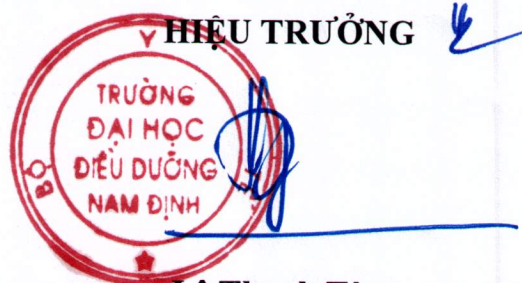 HIỆU TRƯỞNG
BỘ Y
TRƯỜNG
ĐẠI HỌC
ĐIỀU DƯỠNG
NAM ĐỊNH